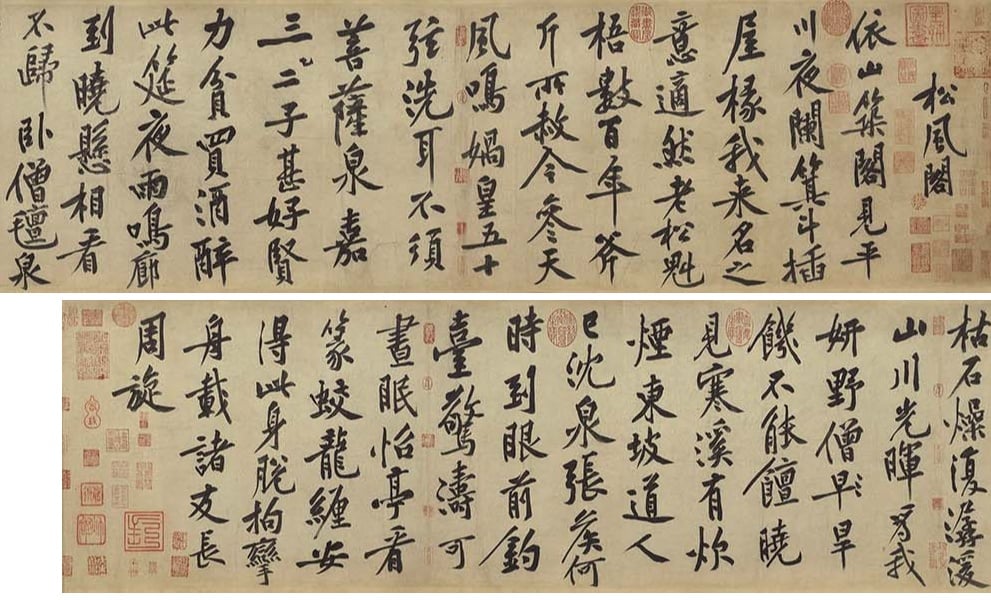 松風閣
依山築閣見平
川夜闌箕斗插
屋椽我来名之
意適然老松魁
梧數百年斧
斤所赦今參天
風鳴媧皇五十
弦洗耳不須
菩薩泉嘉
三二子甚好賢
力貧買酒醉
此筵夜雨鳴廊
到曉懸相看
不歸卧僧氊泉
枯石燥復潺湲
山川光暉為我
妍野僧早旱
饑不能饘曉
見寒溪有炊
煙東坡道人
已沈泉張矦何
時到眼前釣
臺驚濤可
晝眠怡亭看
篆蛟龍纏安
得此身脫拘攣
舟載諸友長
周旋